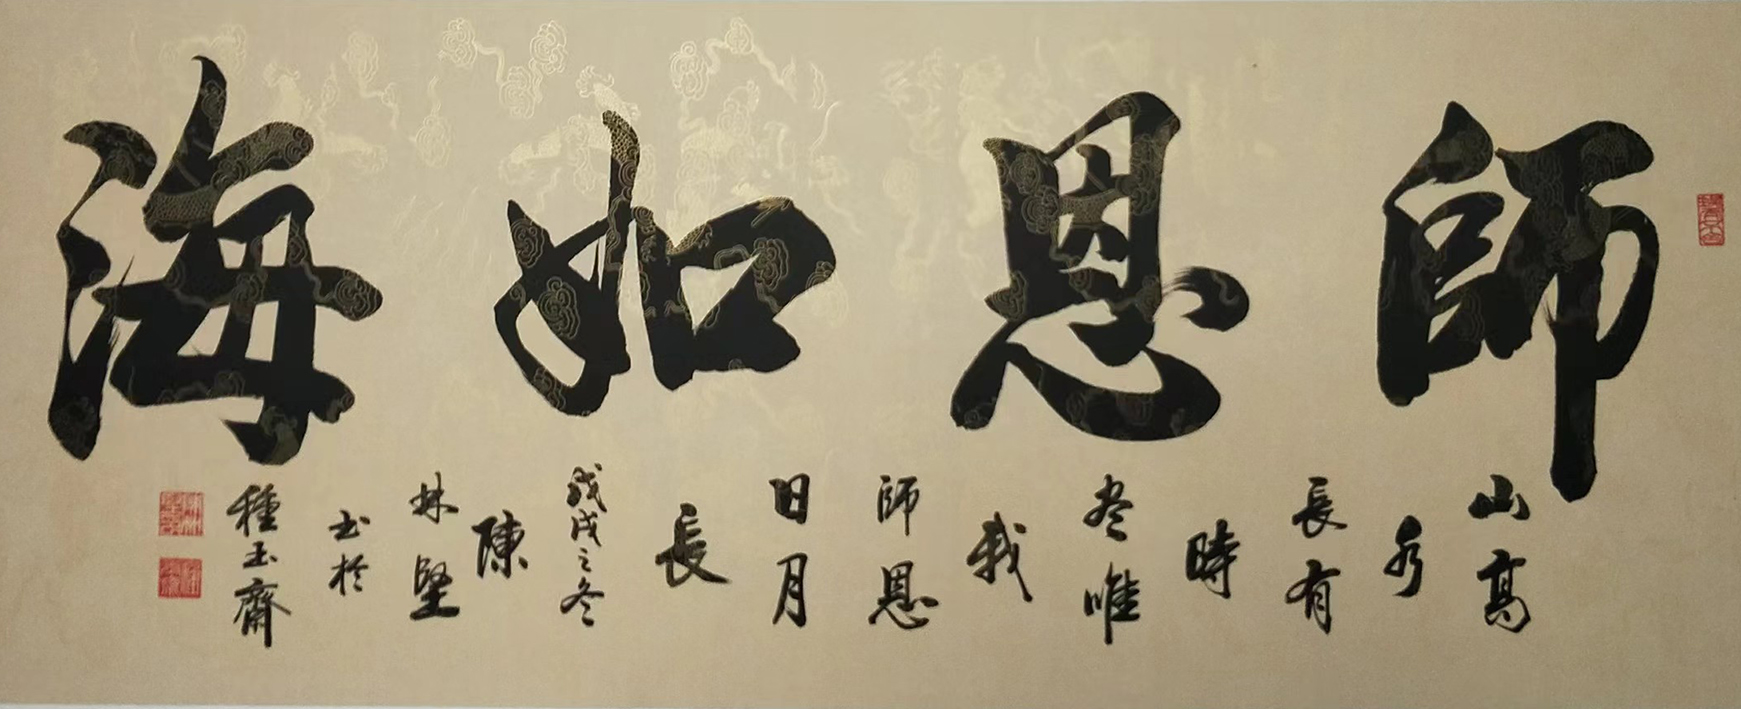 師恩如海
山高
水
長有
時
尽唯
我
師恩
日月
長
戊戌之冬
陳
林堅
书於
種玉齋